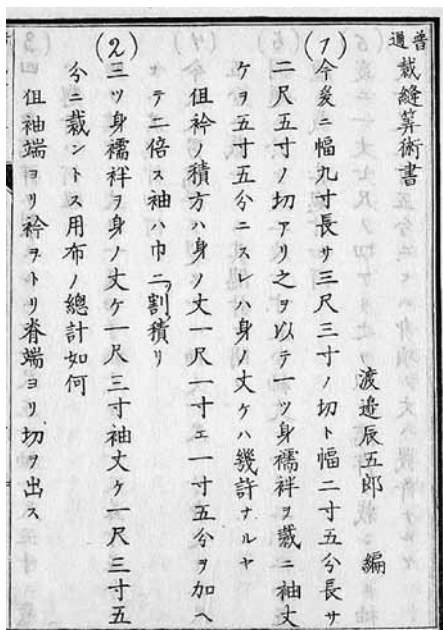 普通 裁縫算術書
渡邉辰五郎 編
(1) 今爰ニ幅九寸長サ三尺三寸ノ切ト幅二寸五分長サ
二尺五寸ノ切アリ之ヲ以テ一ツ身襦袢ヲ裁ニ袖丈
ケヲ五寸五分ニスレハ身ノ丈ケハ幾許ナルヤ
但衿ノ積方ハ身ノ丈一尺一寸エ一寸五分ヲ加ヘ
テ二倍ス袖ハ巾ニ割積リ
(2) 三ツ身襦袢ヲ身ノ丈ケ一尺三寸袖丈ケ一尺三寸五
分ニ裁ントス用布ノ總計如何
但袖端ヨリ衿ヲトリ脊端ヨリ切ヲ出ス